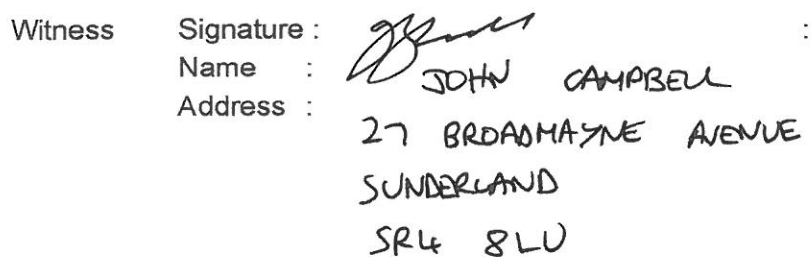 Witness Signature : :
Name : JOHN CAMPBELL
Address :
27 BROADMAYNE AVENUE
SUNDERLAND
SR4 8LU